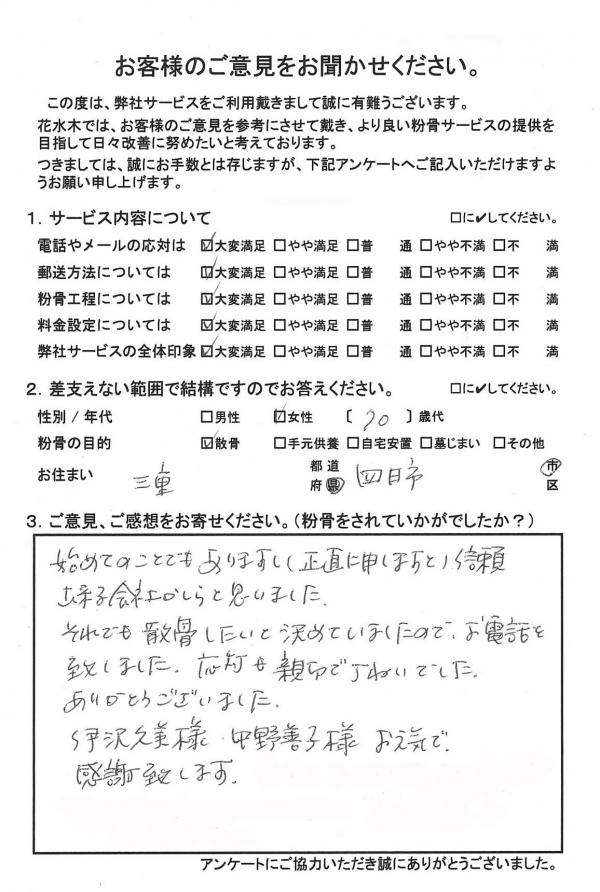 お客様のご意見をお聞かせください。
この度は、弊社サービスをご利用戴きまして誠に有難うございます。
花水木では、お客様のご意見を参考にさせて戴き、より良い粉骨サービスの提供を
目指して日々改善に努めたいと考えております。
つきましては、誠にお手数とは存じますが、下記アンケートへご記入いただけますよ
うお願い申し上げます。
1．サービス内容について □に✔してください。
電話やメールの応対は ☑大変満足 □やや満足 □普　通 □やや不満 □不　満
郵送方法については ☑大変満足 □やや満足 □普　通 □やや不満 □不　満
粉骨工程については ☑大変満足 □やや満足 □普　通 □やや不満 □不　満
料金設定については ☑大変満足 □やや満足 □普　通 □やや不満 □不　満
弊社サービスの全体印象 ☑大変満足 □やや満足 □普　通 □やや不満 □不　満
2．差支えない範囲で結構ですのでお答えください。 □に✔してください。
性別 / 年代 □男性 ☑女性 〔 70 〕歳代
粉骨の目的 ☑散骨 □手元供養 □自宅安置 □墓じまい □その他
お住まい 三重 都 道 府 県 四日市 市 区
3．ご意見、ご感想をお寄せください。（粉骨をされていかがでしたか？）
始めてのことでもありますし（正直に申しますと）信頼
出来る会社かしらと思いました。
それでも散骨したいと決めていましたので、お電話を
致しました。応対も親切で丁ねいでした。
ありがとうございました。
伊沢久美様 中野善子様 お元気で。
感謝致します。
アンケートにご協力いただき誠にありがとうございました。